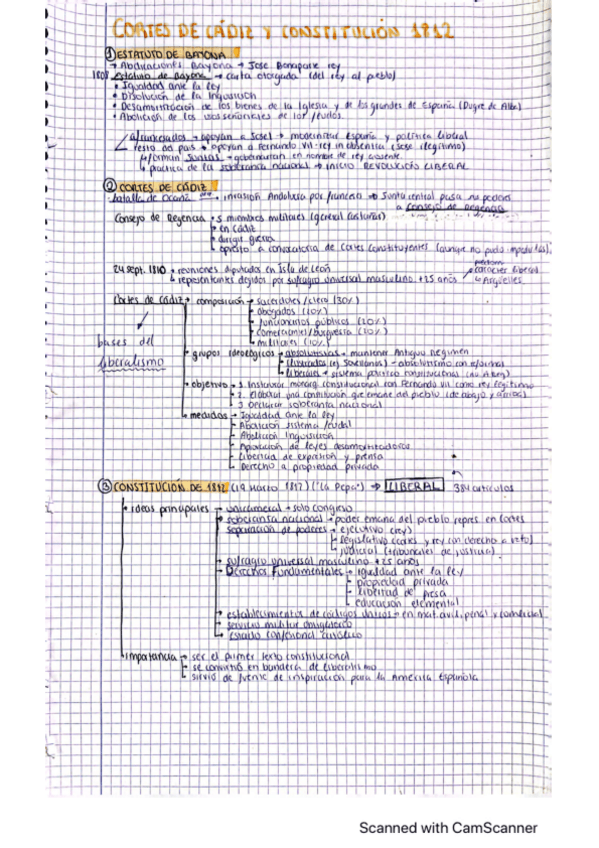 CORTES DE CÁDIZ Y CONSTITUCIÓN 1812
① ESTATUTO DE BAYONA
→ Abdicaciones Bayona → Jose Bonaparte rey
1808 Estatuto de Bayona → carta otorgada (del rey al pueblo)
• Igualdad ante la ley
• Disolución de la Inquisición
• Desamortización de los bienes de la Iglesia y de los grandes de España (Duque de Alba)
• Abolición de los usos señoriales de los feudos.
afrancesados → apoyan a Jose I → modernizar España y política liberal
resto del país → apoyan a Fernando VII - rey in absentia (Jose ilegítimo)
forman Juntas → gobernaban en nombre de rey ausente
practica de la soberanía nacional → INICIO REVOLUCIÓN LIBERAL
② CORTES DE CÁDIZ
batalla de Ocaña → invasión Andalucía por franceses → Junta central pasa sus poderes
a Consejo de Regencia
Consejo de Regencia → 5 miembros militares (general Castaños)
en Cádiz
dirigir guerra
opuesto a convocatoria de Cortes Constituyentes (aunque no pudo impedirlas).
24 sept. 1810 → reuniones diputados en Isla de León
representantes elegidos por sufragio universal masculino +25 años
carácter liberal
Argüelles
Cortes de Cádiz → composición → sacerdotes/clero (30%)
abogados (20%)
funcionarios públicos (20%)
comerciantes/burguesía (10%)
militares (10%)
bases del
liberalismo
grupos ideológicos → absolutistas → mantener Antiguo Régimen
ilustrados (ej Jovellanos) → absolutismo con reformas
liberales → sistema político constitucional
objetivo → 1. Instaurar monarq. constitucional con Fernando VII como rey legítimo
2. Elaborar una constitución que emane del pueblo (de abajo y arriba)
3. Declarar soberanía nacional
medidas → Igualdad ante la ley
Abolición sistema feudal
Abolición Inquisición
Aprobación de leyes desamortizadoras
Libertad de expresión y prensa
Derecho a propiedad privada
③ CONSTITUCIÓN DE 1812 (19 Marzo 1812) ("La Pepa") → LIBERAL 384 artículos
ideas principales → unicameral → solo congreso
soberanía nacional → poder emana del pueblo repres en Cortes
separación de poderes → ejecutivo (rey)
legislativo (cortes y rey con derecho a veto)
judicial (tribunales de justicia)
sufragio universal masculino +25 años
Derechos Fundamentales → igualdad ante la ley
propiedad privada
libertad de
educación elemental
establecimientos de códigos únicos → en mat civil, penal y comercial
servicio militar obligatorio
estado confesional católico
importancia → ser el primer texto constitucional
se convirtió en bandera de liberalismo
sirvió de fuente de inspiración para la América Española
Scanned with CamScanner